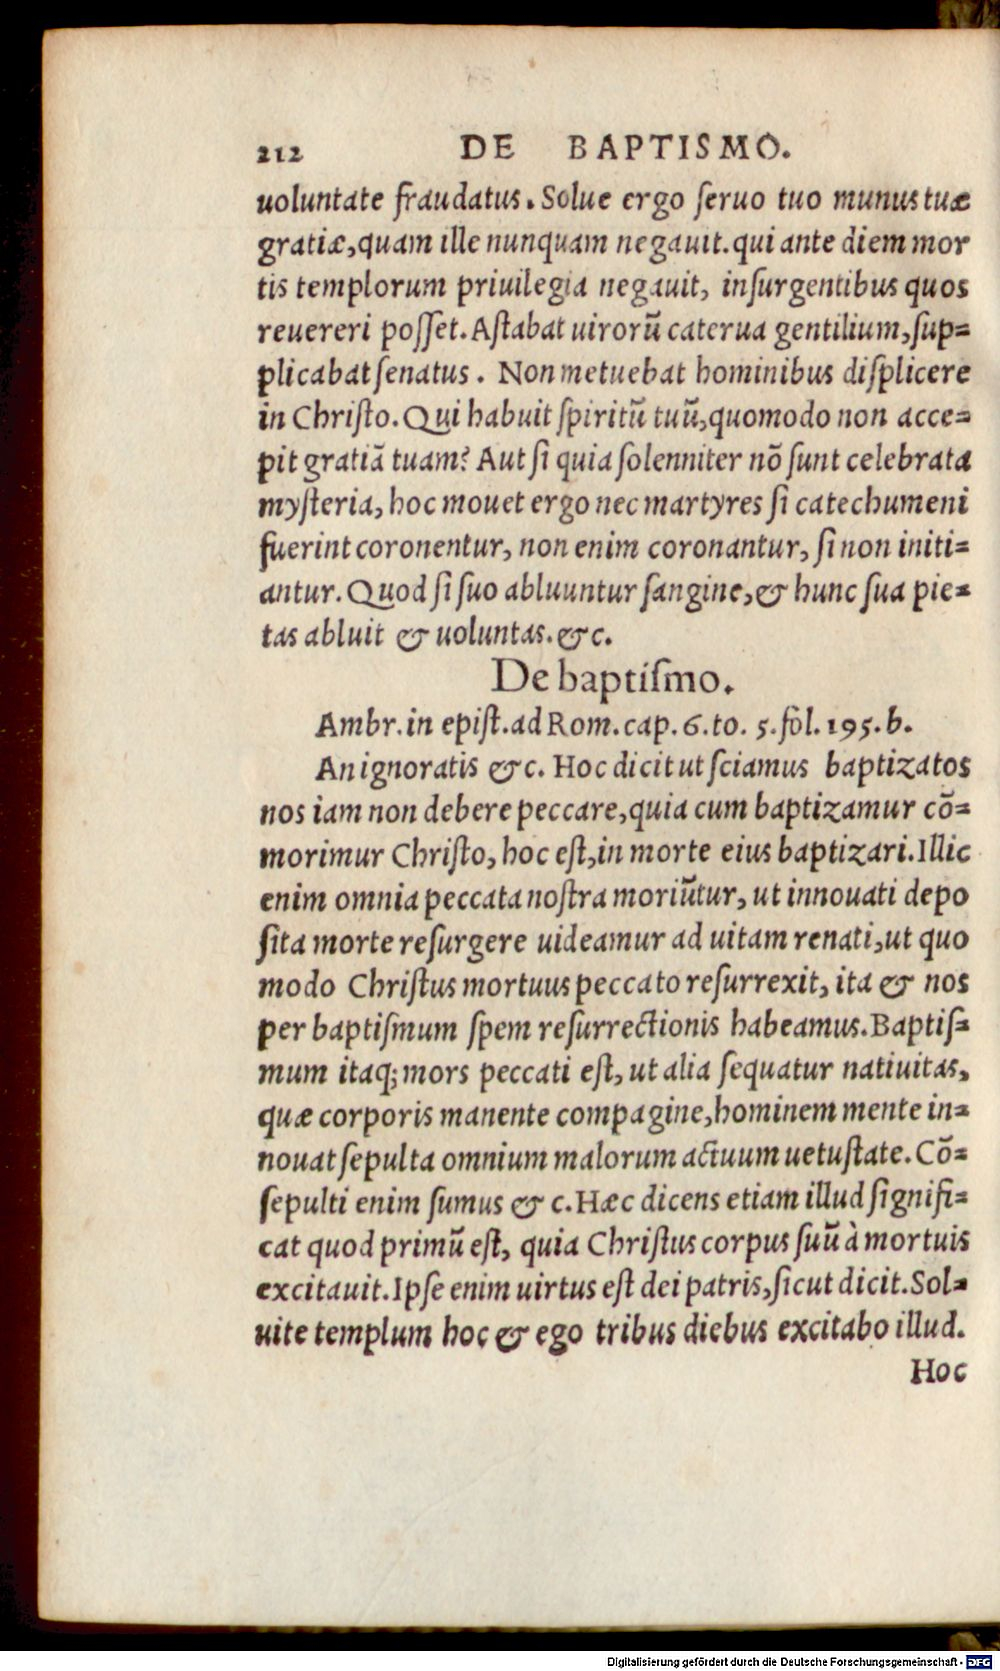 212 DE BAPTISMO.
uoluntate fraudatus. Solue ergo ſeruo tuo munus tuæ
gratiæ, quam ille nunquam negauit. qui ante diem mor
tis templorum priuilegia negauit, inſurgentibus quos
reuereri poſſet. Aſtabat uirorũ caterua gentilium, ſup=
plicabat ſenatus. Non metuebat hominibus diſplicere
in Chriſto. Qui habuit ſpiritũ tuũ, quomodo non acce=
pit gratiã tuam? Aut ſi quia ſolenniter nõ ſunt celebrata
myſteria, hoc mouet ergo nec martyres ſi catechumeni
fuerint coronentur, non enim coronantur, ſi non initi=
antur. Quod ſi ſuo abluuntur ſangine, & hunc ſua pie=
tas abluit & uoluntas. &c.
De baptiſmo.
Ambr. in epiſt. ad Rom. cap. 6. to. 5. fol. 195. b.
An ignoratis &c. Hoc dicit ut ſciamus baptizatos
nos iam non debere peccare, quia cum baptizamur cõ=
morimur Chriſto, hoc eſt, in morte eius baptizari. Illic
enim omnia peccata noſtra moriũtur, ut innouati depo
ſita morte reſurgere uideamur ad uitam renati, ut quo
modo Chriſtus mortuus peccato reſurrexit, ita & nos
per baptiſmum ſpem reſurrectionis habeamus. Baptiſ=
mum itaq; mors peccati eſt, ut alia ſequatur natiuitas,
quæ corporis manente compagine, hominem mente in=
nouat ſepulta omnium malorum actuum uetuſtate. Cõ=
ſepulti enim ſumus & c. Hæc dicens etiam illud ſignifi=
cat quod primũ eſt, quia Chriſtus corpus ſuũ à mortuis
excitauit. Ipſe enim uirtus eſt dei patris, ſicut dicit. Sol=
uite templum hoc & ego tribus diebus excitabo illud.
Hoc
Digitalisierung gefördert durch die Deutsche Forschungsgemeinschaft - DFG